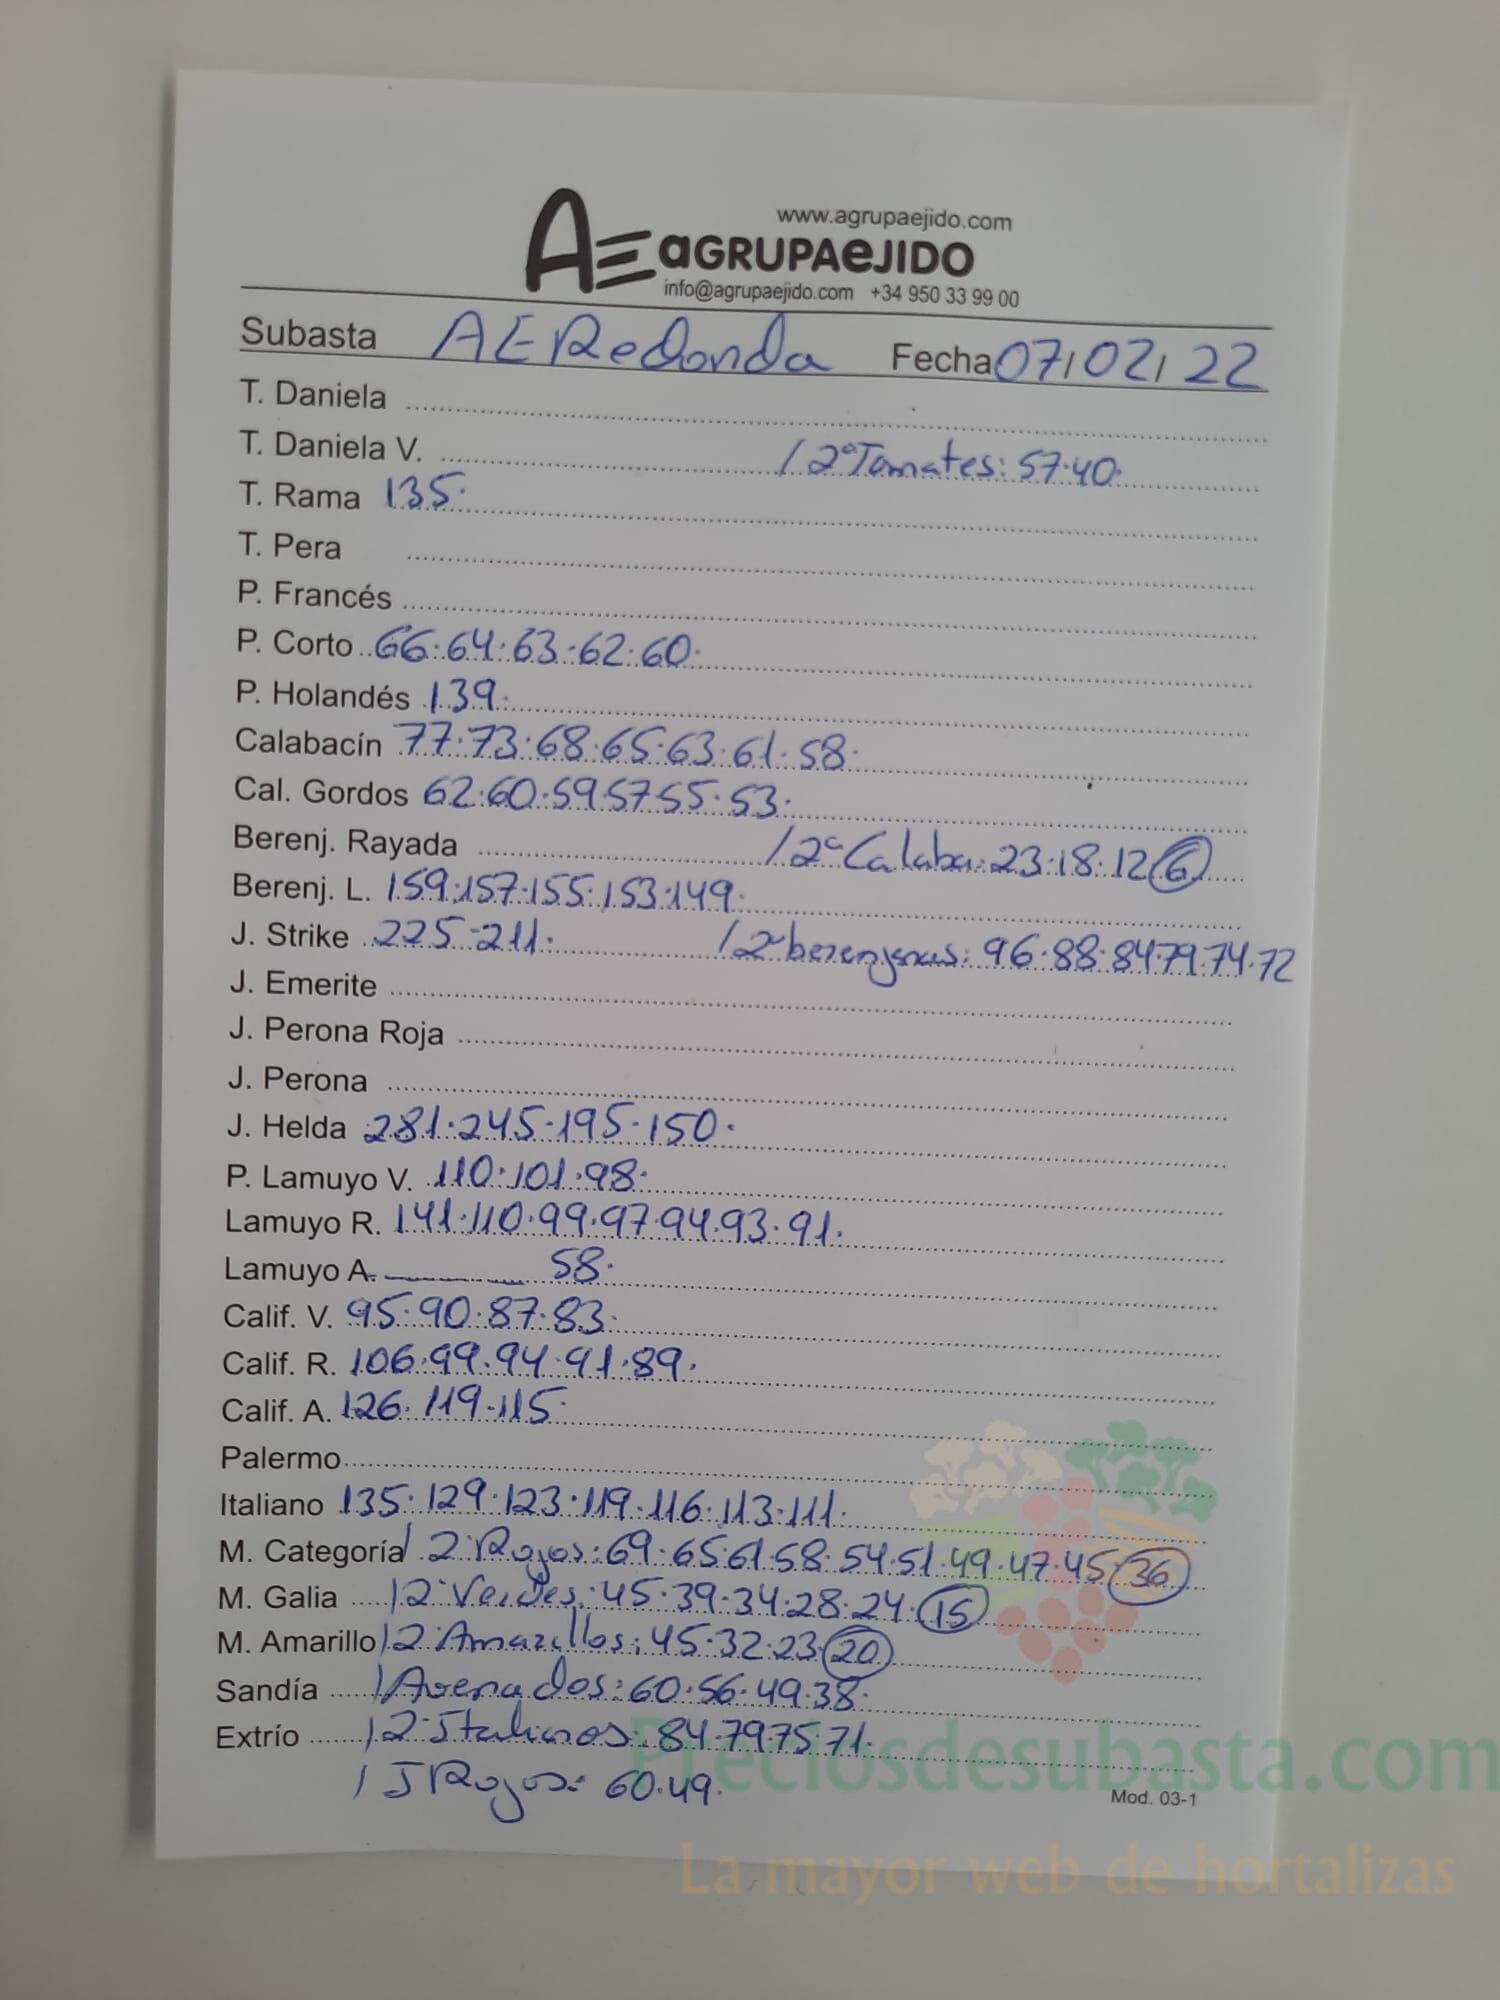 www.agrupaejido.com
AE aGRUPAeJIDO
info@agrupaejido.com +34 950 33 99 00
Subasta AE Redonda Fecha 07/02/22
T. Daniela
T. Daniela V. / 2ª Tomates: 57.40.
T. Rama 135.
T. Pera
P. Francés
P. Corto 66.64.63.62.60.
P. Holandés 139.
Calabacín 77.73.68.65.63.61.58.
Cal. Gordos 62.60.59.57.55.53.
Berenj. Rayada / 2ª Calaba: 23.18.12 6
Berenj. L. 159.157.155.153.149.
J. Strike 225-211. / 2ª berenjenas: 96.88.84.79.74.72
J. Emerite
J. Perona Roja
J. Perona
J. Helda 281.245.195.150.
P. Lamuyo V. 110.101.98.
Lamuyo R. 141.110.99.97.94.93.91.
Lamuyo A. 58.
Calif. V. 95.90.87.83.
Calif. R. 106.99.94.91.89.
Calif. A. 126.119.115.
Palermo
Italiano 135.129.123.119.116.113.111.
M. Categoría / 2ª Rojos: 69.65.61.58.54.51.49.47.45 36
M. Galia / 2ª Verdes: 45.39.34.28.24. 15
M. Amarillo / 2ª Amarillos: 45.32.23. 20
Sandía / Asenados: 60.56.49.38.
Extrío / 2ª Italianos: 84.79.75.71.
/ J Rojos: 60.49.
Preciosdesubasta.com
Mod. 03-1
La mayor web de hortalizas